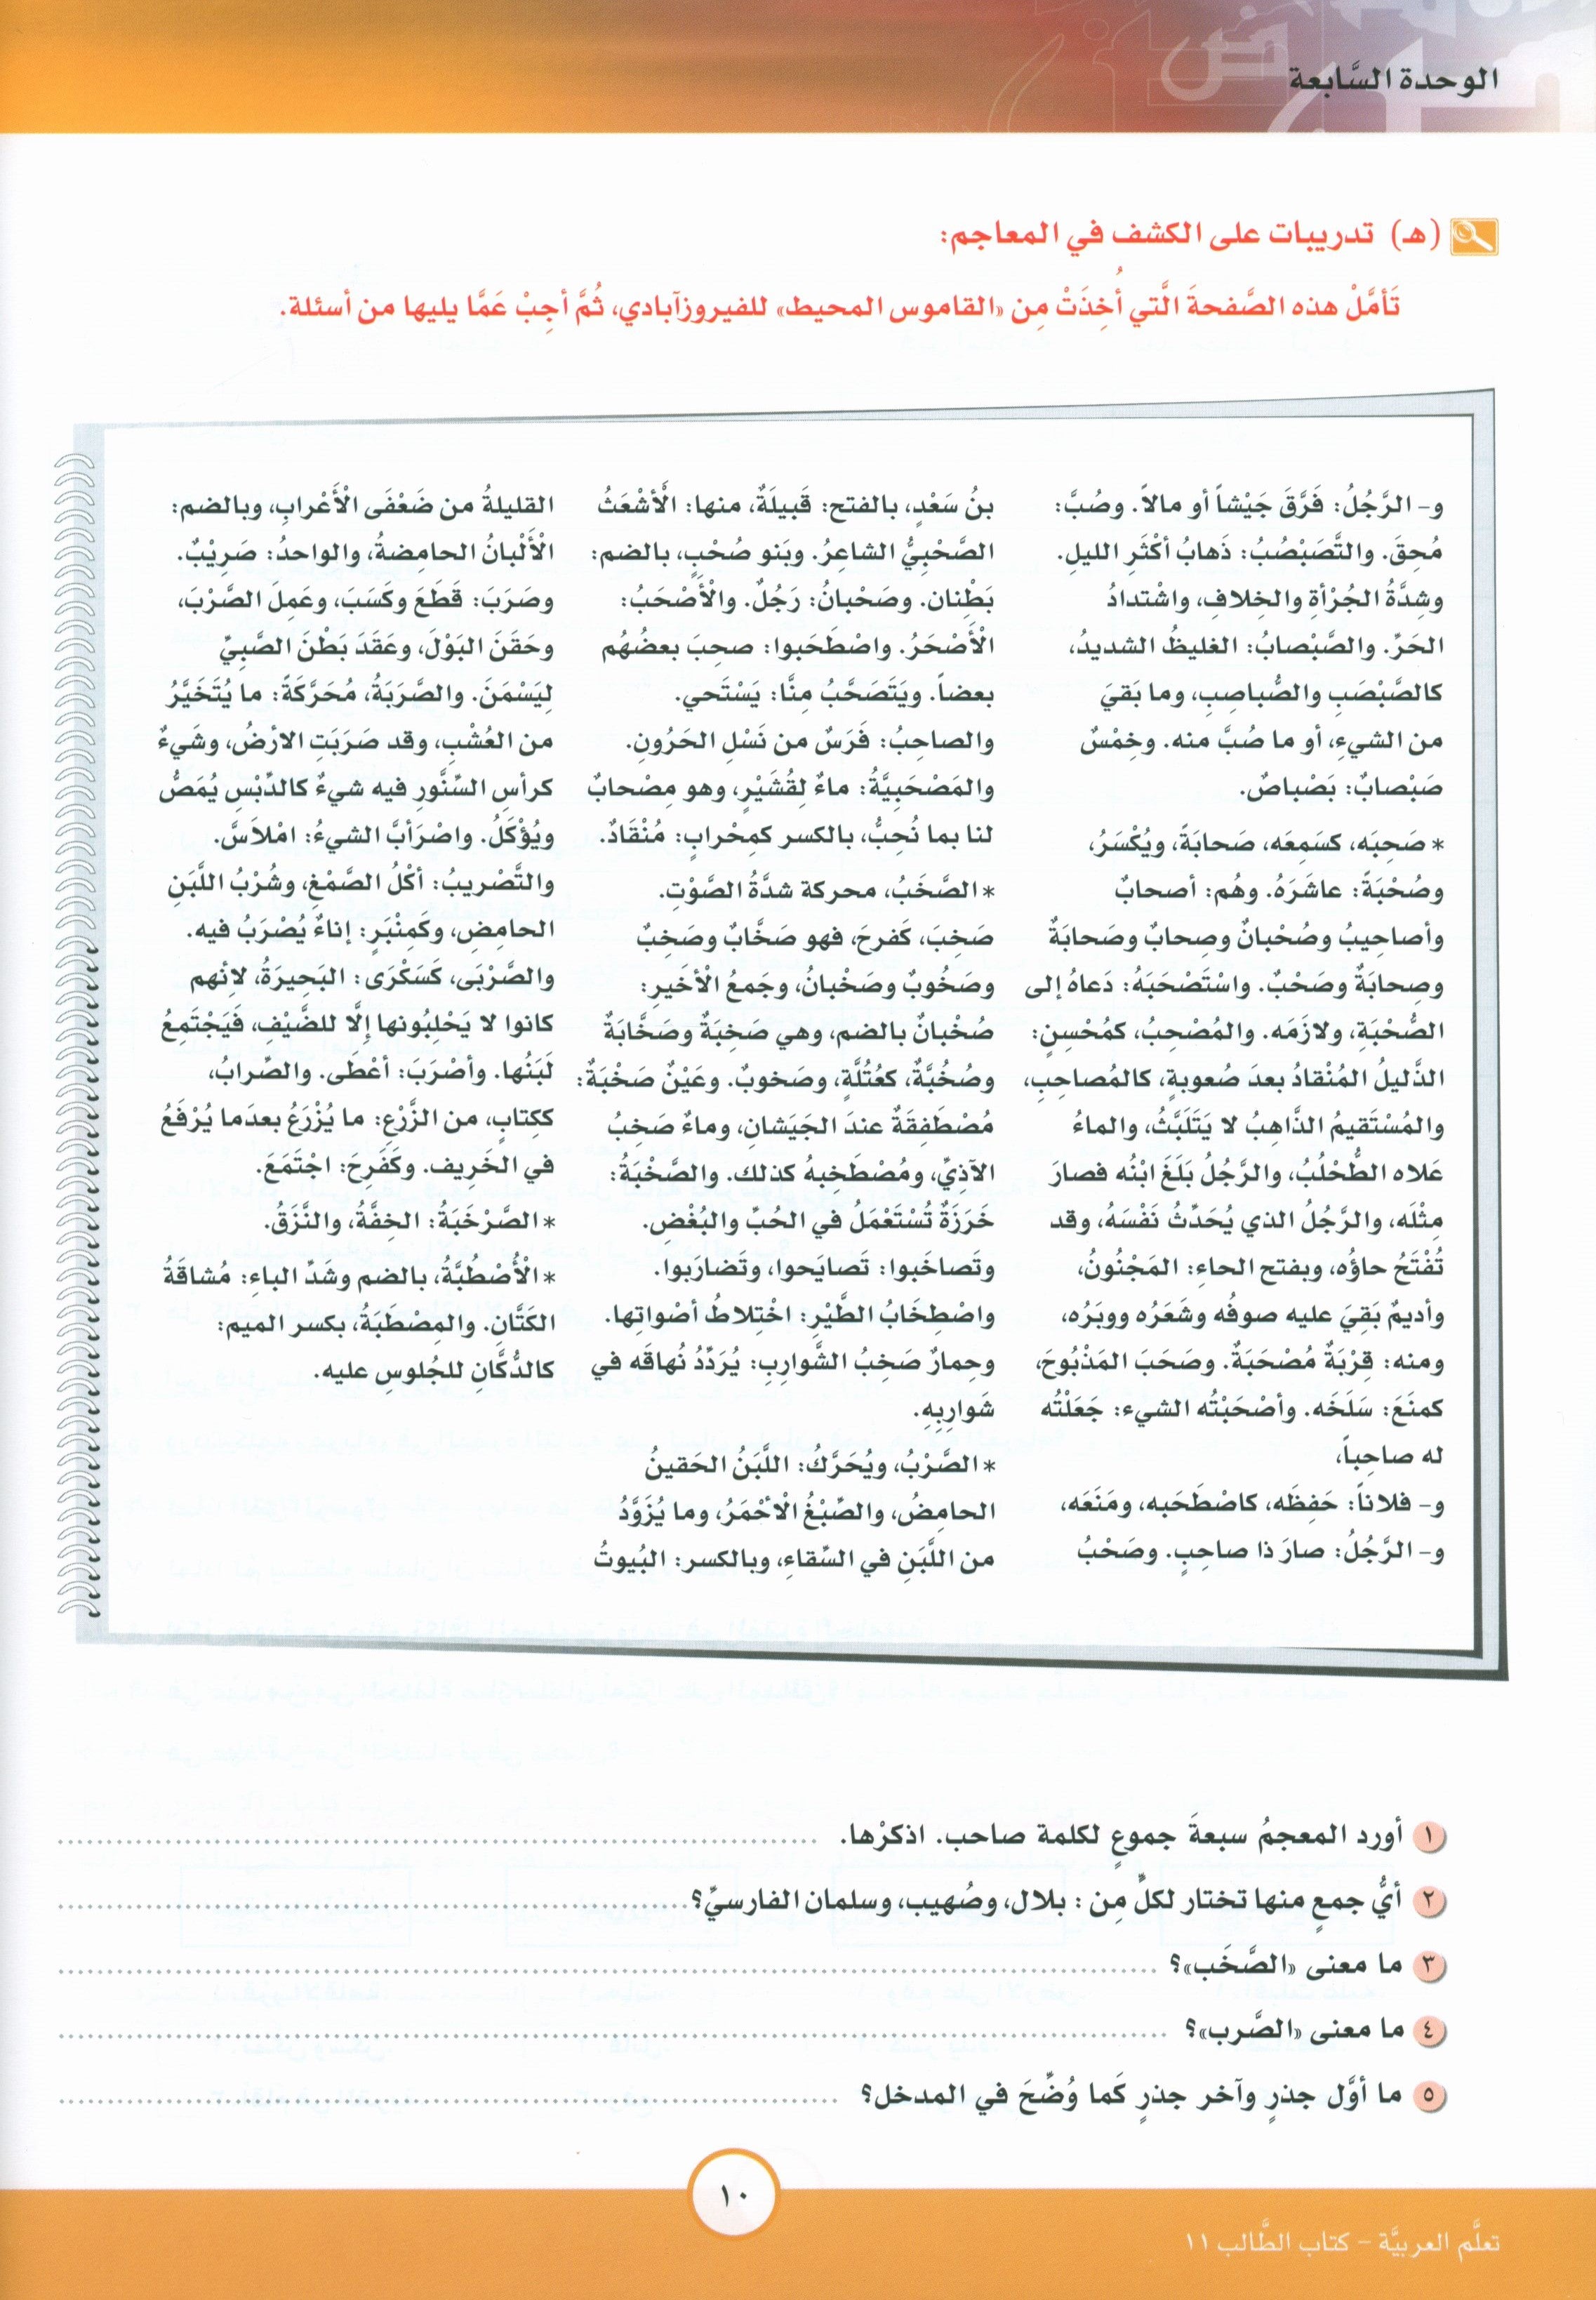 الوحدة السَّابعة
(هـ) تدريبات على الكشف في المعاجم:
تَأمَّلْ هذه الصَّفحةَ الَّتي أُخِذَتْ مِن «القاموس المحيط» للفيروزآبادي، ثُمَّ أجِبْ عَمَّا يليها من أسئلة.
و- الرَّجُلُ: فَرَّقَ جَيْشاً أو مالاً. وصُبَّ:
مُحِقَ. والتَّصَبْصُبُ: ذَهابُ أكْثَرِ الليلِ.
وشِدَّةُ الجُرْأةِ والخِلافِ، واشْتدادُ
الحَرِّ. والصَّبْصابُ: الغليظُ الشديدُ،
كالصَّبْصَبِ والصُّباصِبِ، وما بَقيَ
من الشيءِ، أو ما صُبَّ منه. وخِمْسٌ
صَبْصابٌ: بَصْباصٌ.
* صَحِبَه، كسَمِعَه، صَحابَةً، ويُكْسَرُ،
وصُحْبَةً: عاشَرَهُ. وهُم: أصحابٌ
وأصاحِيبُ وصُحْبانٌ وصِحابٌ وصَحابَةٌ
وصِحابَةٌ وصَحْبٌ. واسْتَصْحَبَهُ: دَعاهُ إلى
الصُّحْبَةِ، ولازَمَه. والمُصْحِبُ، كمُحْسِنٍ:
الذَّليلُ المُنْقادُ بعدَ صُعوبةٍ، كالمُصاحِبِ،
والمُسْتَقيمُ الذَّاهِبُ لا يَتَلَبَّثُ، والماءُ
عَلاه الطُّحْلُبُ، والرَّجُلُ بَلَغَ ابْنُه فصارَ
مِثْلَه، والرَّجُلُ الذي يُحَدِّثُ نَفْسَهُ، وقد
تُفْتَحُ حاؤُه، وبفتح الحاءِ: المَجْنُونُ،
وأديمٌ بَقيَ عليه صوفُه وشَعَرُه ووبَرُه،
ومنه: قِرْبَةٌ مُصْحَبَةٌ. وصَحَبَ المَذْبُوحَ،
كمنَعَ: سَلَخَه. وأصْحَبْتُه الشيء: جَعَلْتُه
له صاحِباً،
و- فلاناً: حَفِظَه، كاصْطَحَبه، ومَنَعَه،
و- الرَّجُلُ: صارَ ذا صاحِبٍ. وصَحْبُ
بنُ سَعْدٍ، بالفتح: قَبيلَةٌ، منها: الْأشْعَثُ
الصَّحْبِيُّ الشاعِرُ. وبَنو صُحْبٍ، بالضم:
بَطْنان. وصَحْبانُ: رَجُلٌ. والْأصْحَبُ:
الْأصْحَرُ. واصْطَحَبوا: صحِبَ بعضُهُم
بعضاً. ويَتَصَحَّبُ مِنَّا: يَسْتَحي.
والصاحِبُ: فَرَسٌ من نَسْلِ الحَرُونِ.
والمَصْحَبِيَّةُ: ماءٌ لِقُشَيْرٍ، وهو مِصْحابٌ
لنا بما نُحِبُّ، بالكسر كمِحْرابٍ: مُنْقَادٌ.
* الصَّخَبُ، محركة شدَّةُ الصَّوْتِ.
صَخِبَ، كَفرحَ، فهو صَخَّابٌ وصَخِبٌ
وصَخُوبٌ وصَخْبانُ، وجَمعُ الْأخَيرِ:
صُخْبانٌ بالضم، وهي صَخِبَةٌ وصَخَّابَةٌ
وصُخُبَّةٌ، كعُتُلَّةٍ، وصَخوبٌ. وعَيْنٌ صَخْبَةٌ:
مُصْطَفِقَةٌ عندَ الجَيَشانِ، وماءٌ صَخِبُ
الآذيِّ، ومُصْطَخِبهُ كذلك. والصَّخْبَةُ:
خَرَزَةٌ تُسْتَعْمَلُ في الحُبِّ والبُغْضِ.
وتَصاخَبوا: تَصايَحوا، وتَضارَبوا.
واصْطِخَابُ الطَّيْرِ: اخْتِلاطُ أصْواتِها.
وحِمارٌ صَخِبُ الشَّوارِبِ: يُرَدِّدُ نُهاقَه في
شَوارِبِهِ.
* الصَّرْبُ، ويُحَرَّكُ: اللَّبَنُ الحَقينُ
الحامِضُ، والصِّبْغُ الْأحْمَرُ، وما يُزَوَّدُ
من اللَّبَنِ في السِّقاءِ، وبالكسر: البُيوتُ
القليلةُ من ضَعْفَى الْأَعْرابِ، وبالضم:
الْأَلْبانُ الحامِضةُ، والواحدُ: صَرِيْبٌ.
وصَرَبَ: قَطَعَ وكَسَبَ، وعَمِلَ الصَّرْبَ،
وحَقَنَ البَوْلَ، وعَقَدَ بَطْنَ الصَّبيِّ
لِيَسْمَنَ. والصَّرَبَةُ، مُحَرَّكَةً: ما يُتَخَيَّرُ
من العُشْبِ، وقد صَرَبَتِ الارضُ، وشَيءٌ
كرأسِ السِّنَّورِ فيه شيءٌ كالدِّبْسِ يُمَصُّ
ويُؤْكَلُ. واصْرَأبَّ الشيءُ: امْلاَسَّ.
والتَّصْريبُ: أكْلُ الصَّمْغِ، وشُرْبُ اللَّبَنِ
الحامِضِ، وكمِنْبَرٍ: إناءٌ يُصْرَبُ فيه.
والصَّرْبَى، كَسَكْرَى: البَحِيرَةُ، لانهم
كانوا لا يَحْلِبُونها إِلَّا للضَّيْفِ، فَيَجْتَمِعُ
لَبَنُها. وأصْرَبَ: أعْطى. والصِّرابُ،
ككِتابٍ، من الزَّرْعِ: ما يُزْرَعُ بعدَما يُرْفَعُ
في الخَريف. وكَفَرِحَ: اجْتَمَعَ.
* الصَّرْخَبَةُ: الخِفَّةُ، والنَّزَقُ.
* الْأُصْطُبَّةُ، بالضم وشَدِّ الباءِ: مُشاقَةُ
الكَتَّانِ. والمِصْطَبَةُ، بكسر الميم:
كالدُّكَّانِ للجُلوسِ عليه.
١ أورد المعجمُ سبعةَ جموعٍ لكلمة صاحب. اذكرْها.
٢ أيُّ جمعٍ منها تختار لكلٍّ مِن : بلال، وصُهيب، وسلمان الفارسيِّ؟
٣ ما معنى «الصَّخَب»؟
٤ ما معنى «الصَّرب»؟
٥ ما أوَّل جذرٍ وآخر جذرٍ كَما وُضِّحَ في المدخل؟
١٠
تعلَّم العربيَّة - كتاب الطَّالب ١١